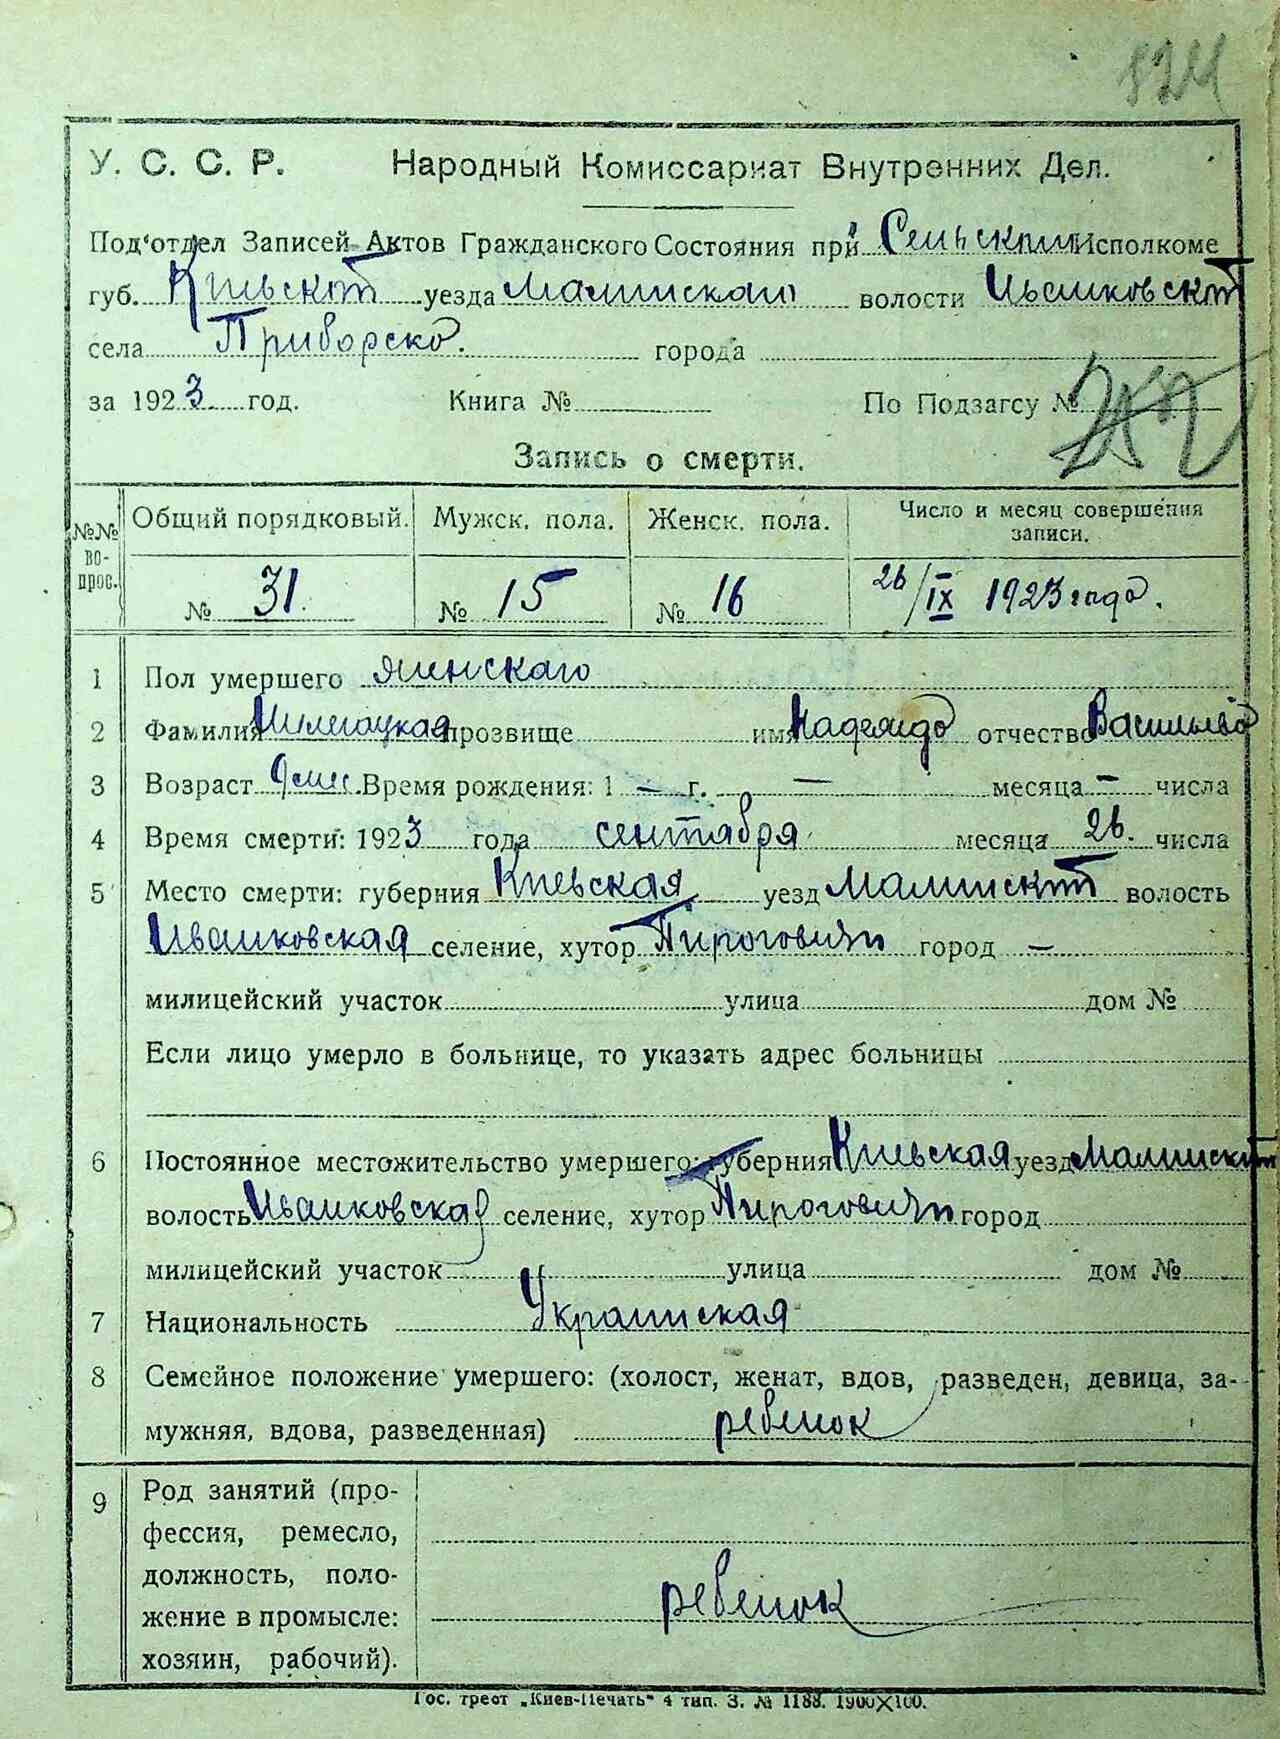 824
У. С. С. Р. Народный Комиссариат Внутренних Дел.
Под'отдел Записей Актов Гражданского Состояния при Сельском Исполкоме
губ. Киевской уезда Малинскаго волости Иванковской
села Приборско. города
за 1923 год. Книга № По Подзагсу №
Запись о смерти.
№№ вопрос. Общий порядковый. Мужск. пола. Женск. пола. Число и месяц совершения записи.
№ 31. № 15 № 16 26/IX 1923 года.
1 Пол умершего женскаго
2 Фамилия прозвище имя Надежда отчество Васильева
3 Возраст 9 мес. Время рождения: 1 — г. — месяца — числа
4 Время смерти: 1923 года сентября месяца 26. числа
5 Место смерти: губерния Киевская уезд Малинской волость
Иванковская селение, хутор Пироговичи город —
милицейский участок улица дом №
Если лицо умерло в больнице, то указать адрес больницы
6 Постоянное местожительство умершего: губерния Киевская уезд Малинской
волость Иванковская селение, хутор Пироговичи город
милицейский участок улица дом №
7 Национальность Украинская
8 Семейное положение умершего: (холост, женат, вдов, разведен, девица, за-
мужняя, вдова, разведенная) ребенок
9 Род занятий (про-
фессия, ремесло,
должность, поло-
жение в промысле: ребенок
хозяин, рабочий).
Гос. трест „Киев-Печать" 4 тип. З. № 1188. 1900X100.